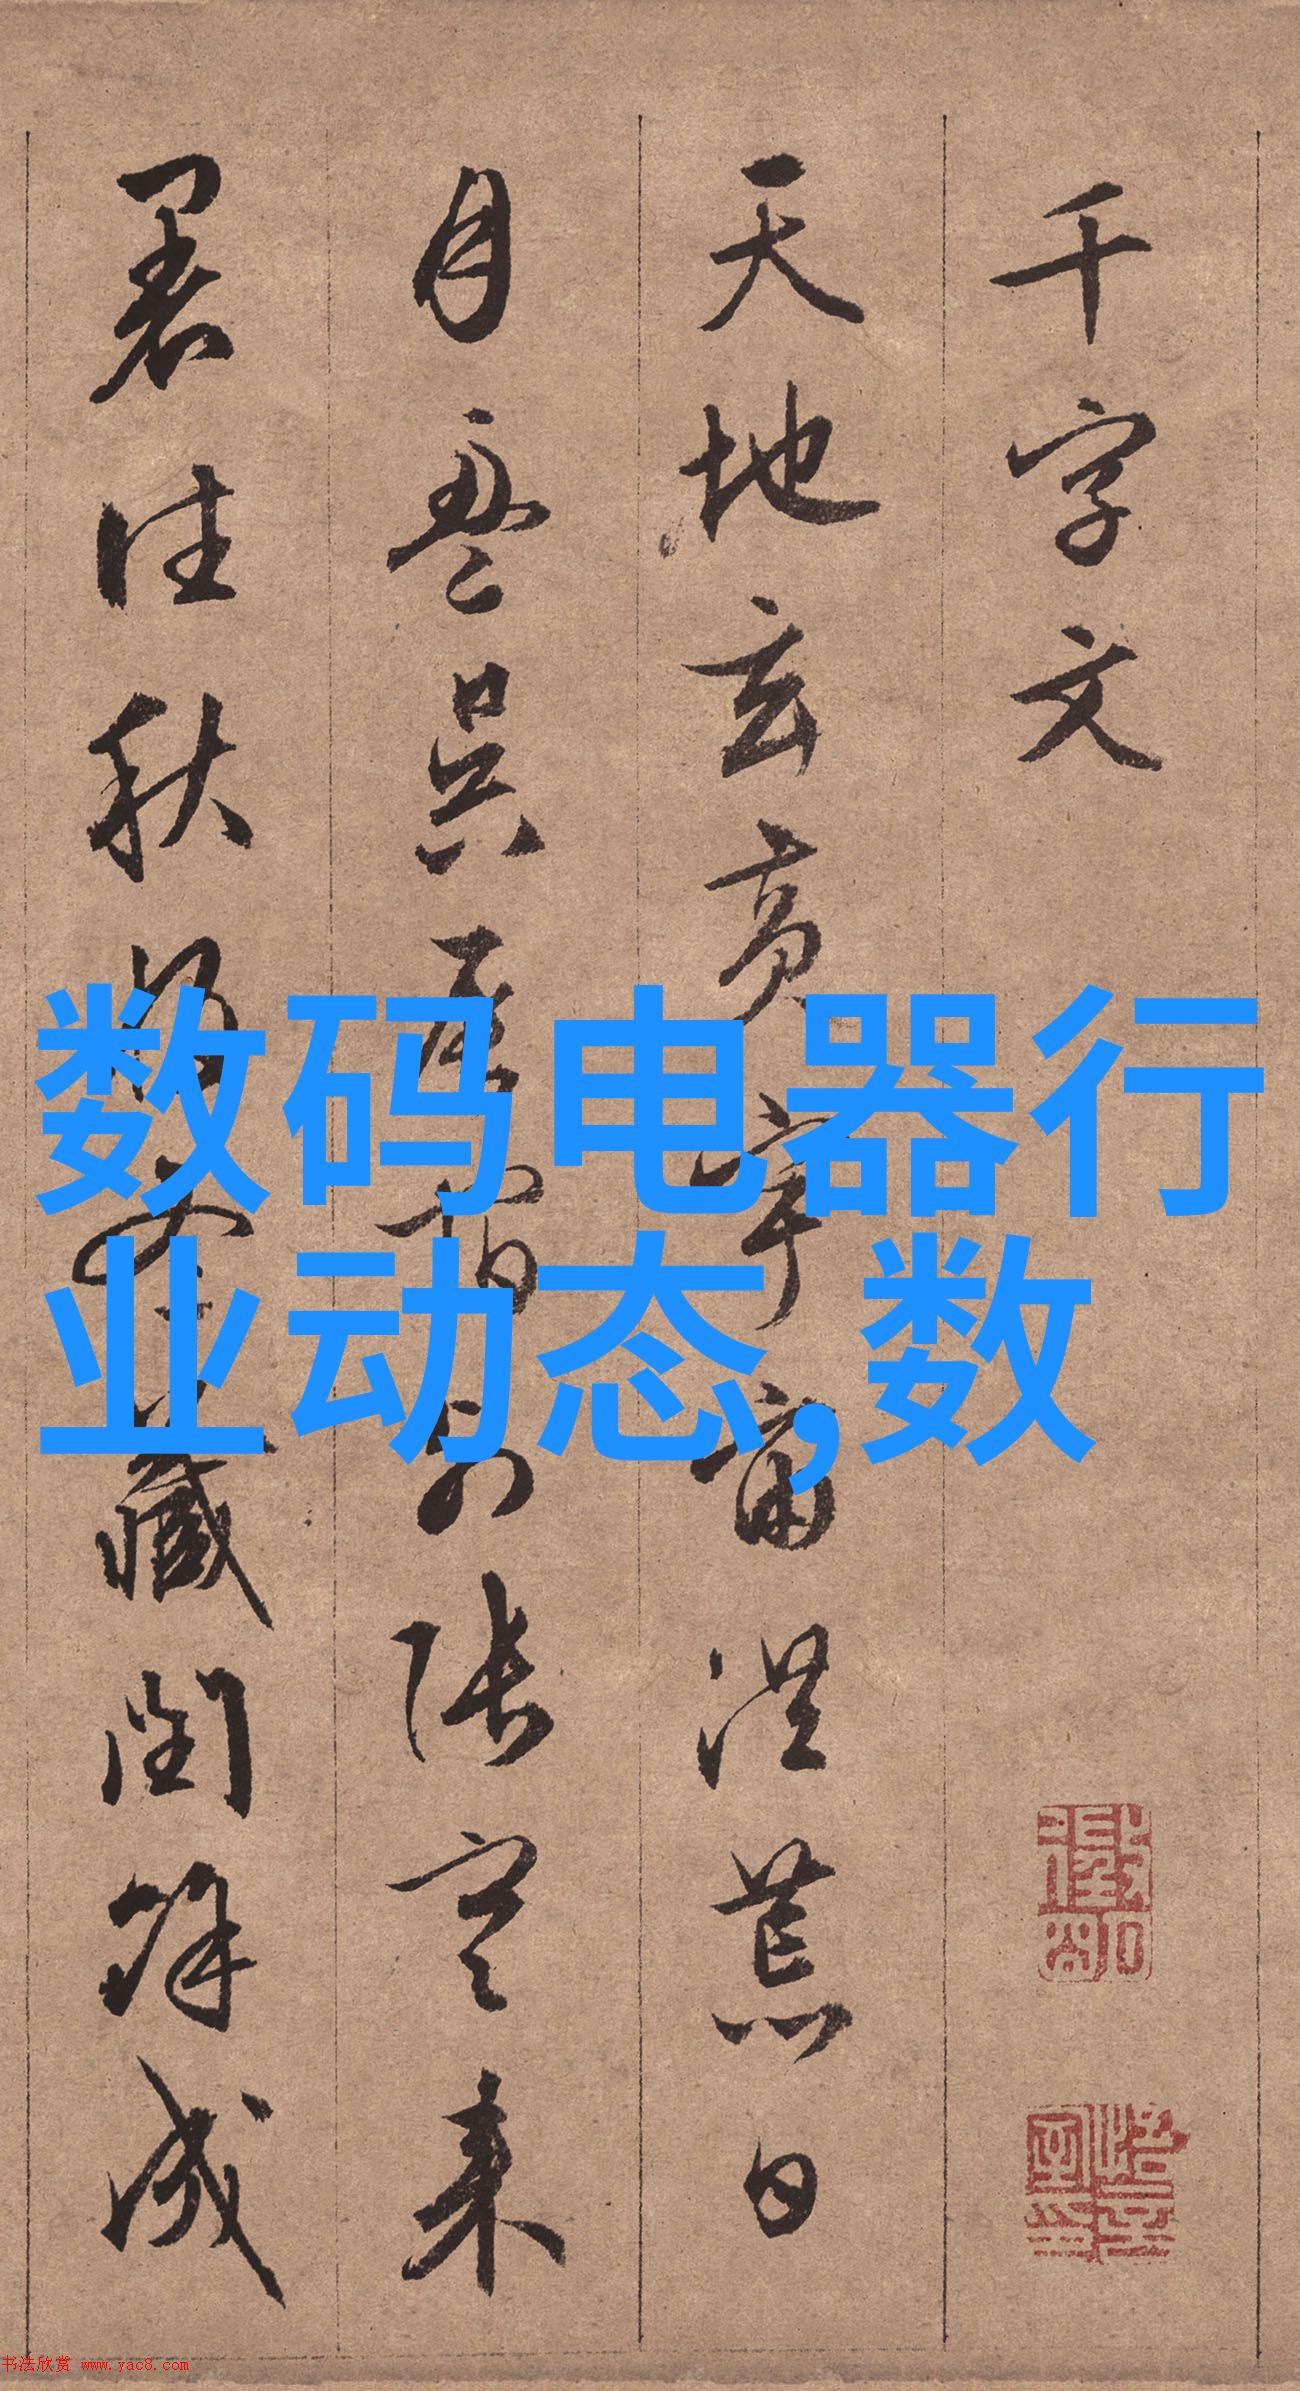 千字文
天地玄黃宇宙洪荒日
月盈昃辰宿列張寒來
暑往秋收冬藏閏餘成
数码电器行
业动态,数
书法欣赏 www.yac8.com